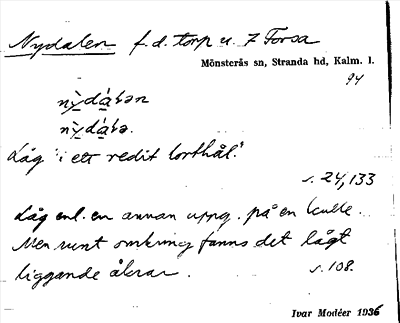 Nydalen f.d. torp u. 7 Forsa
Mönsterås sn, Stranda hd, Kalm. l.
94
Låg "i ett redit lorthål."
s. 24, 133
Låg enl. en annan uppg. på en kulle.
Men runt omkring fanns det lågt
liggande åkrar. s. 108.
Ivar Modéer 1936